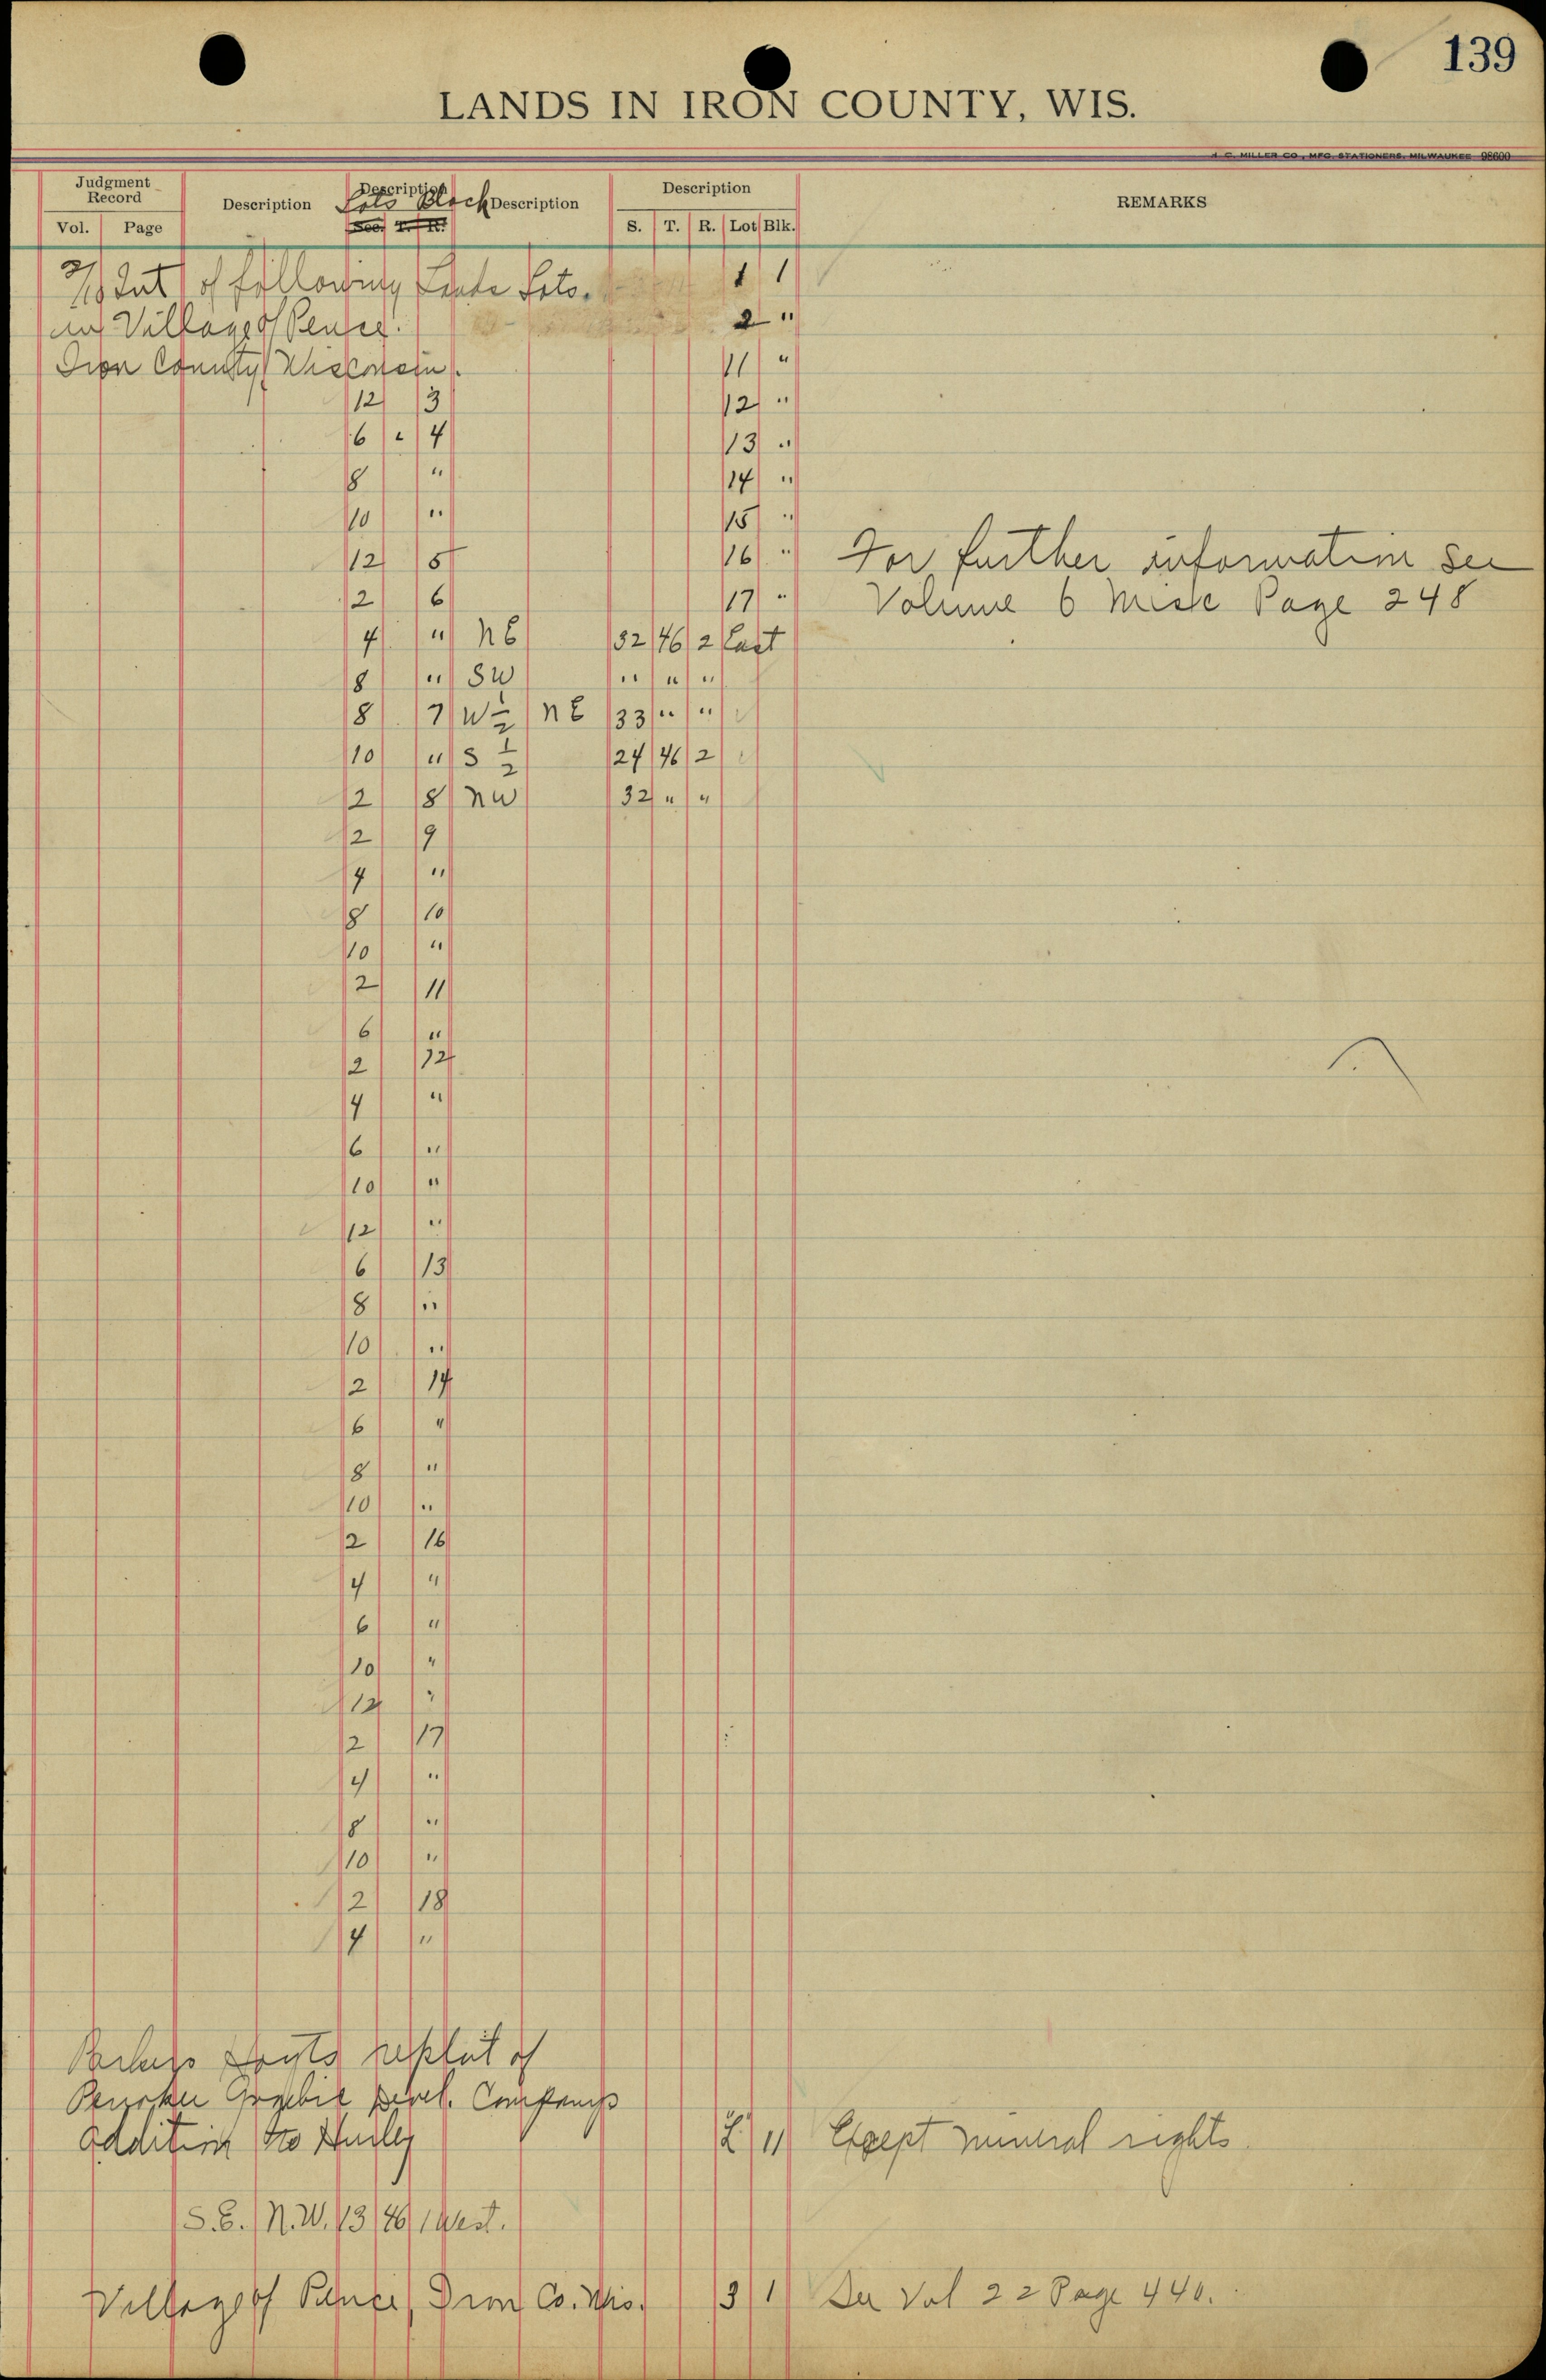 139
LANDS IN IRON COUNTY, WIS.
H. C. MILLER CO., MFG. STATIONERS, MILWAUKEE 98600
Judgment Record Description Description Lots Block Description Description REMARKS
Vol. Page Sec. T. R. S. T. R. Lot Blk.
Int of following Lots. 1 1
in Village of Pence. 2 "
Iron County Wisconsin. 11 "
12 3 12 "
6 " 4 13 "
8 " 14 "
10 " 15 "
12 5 16 " For further information see
2 6 17 " Volume 6 Misc Page 248
4 " NE 32 46 2 East
8 " SW " " "
8 7 W ½ NE 33 " "
10 " S ½ 24 46 2
2 8 NW 32 " "
2 9
4 "
8 10
10 "
2 11
6 "
2 12
4 "
6 "
10 "
12 "
6 13
8 "
10 "
2 14
6 "
8 "
10 "
2 16
4 "
6 "
10 "
12 "
2 17
4 "
8 "
10 "
2 18
4 "
replat of
Gogebic Devel. Companys
addition to Hurley 11 Except mineral rights.
S.E. N.W. 13 46 1 West.
Village of Pence, Iron Co. Wis. 3 1 See Vol 22 Page 440.